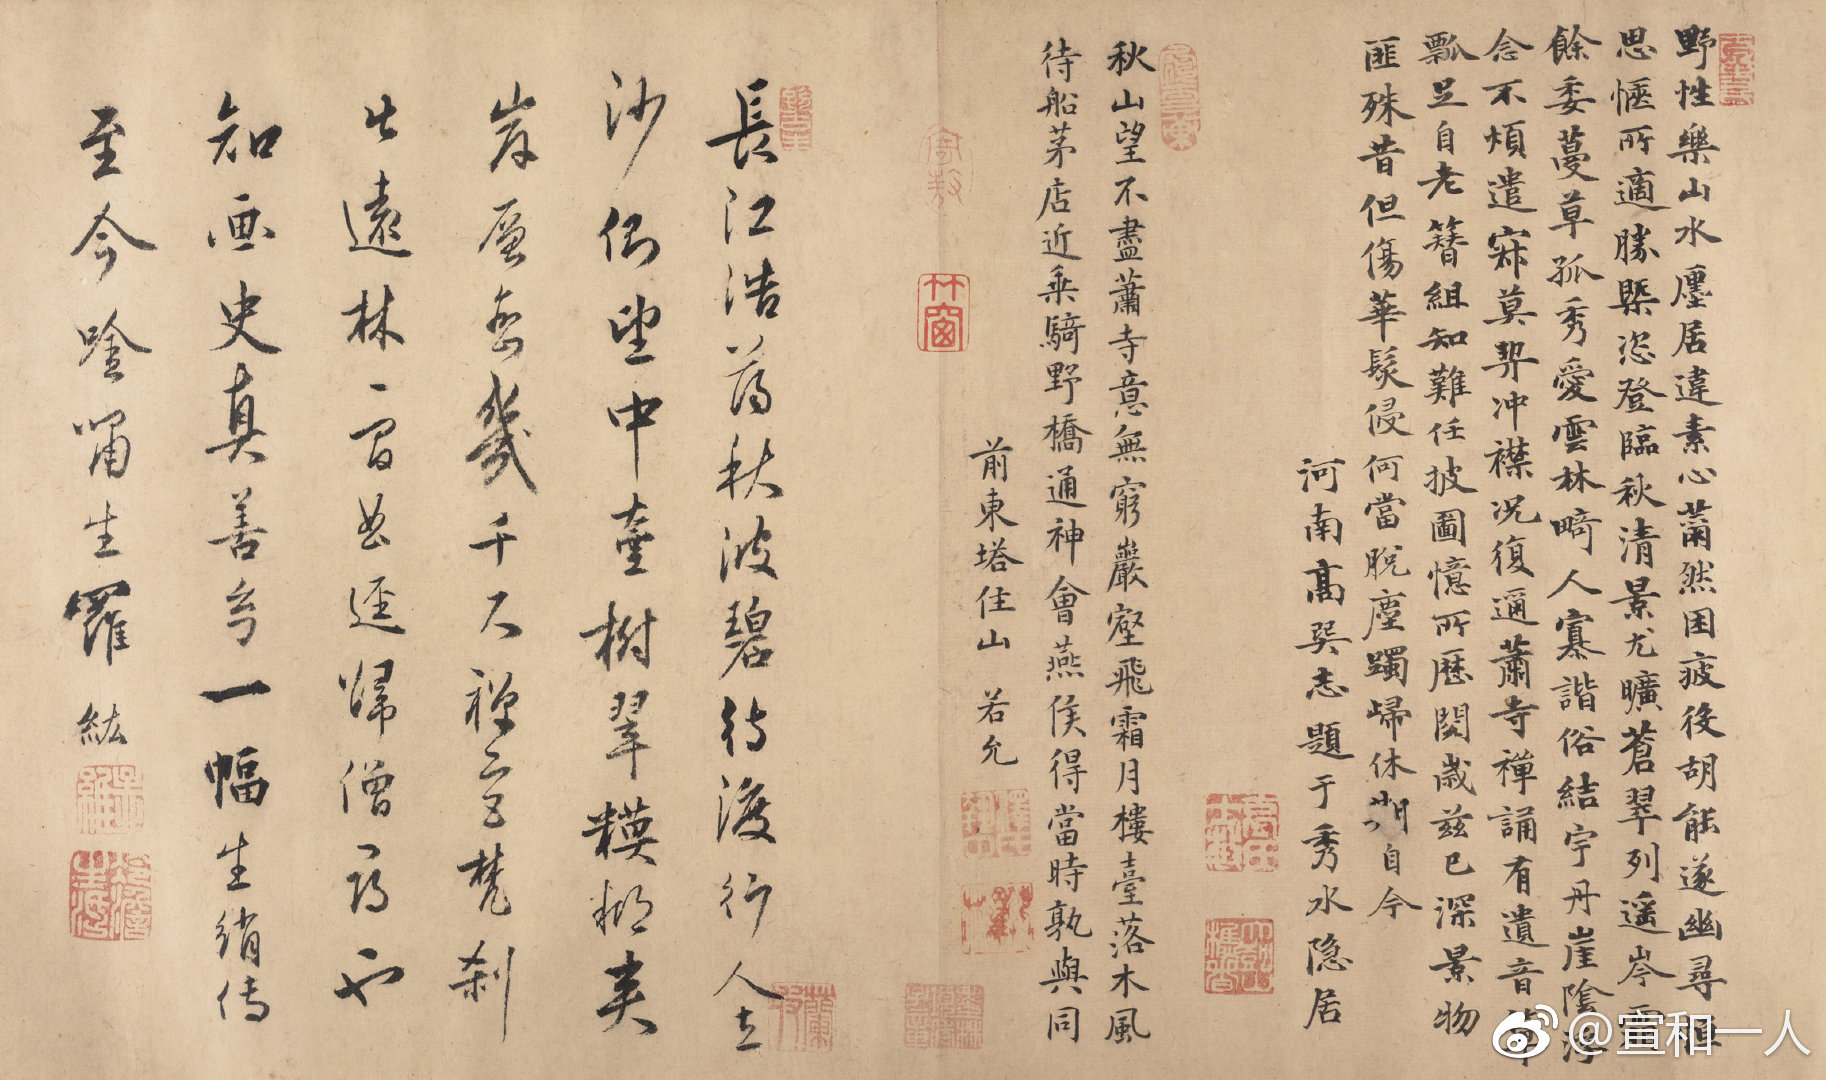 野性樂山水廛居違素心薾然困疲役胡能遂幽尋
思愜所適勝槩恣登臨秋清景尤曠蒼翠列遥岑
餘委蔓草孤秀愛雲林畸人寡諧俗結宇丹崖陰
念不煩遣寂莫契冲襟况復邇蕭寺禪誦有遺音
瓢足自老簪組知難任披圖憶所歷閱歲茲已深景物
匪殊昔但傷華髮侵何當脫塵躅歸休自今
河南高巽志題于秀水隐居
秋山望不盡蕭寺意無窮巖壑飛霜月樓臺落木風
待船茅店近乘騎野橋通神會燕侯得當時孰與同
前東塔住山 若允
長江浩蕩秋波碧待渡行人立
沙側望中臺樹翠糢糊美
岸層巒幾千尺禪宮梵刹
出遠林一召曲逕歸僧
知画史真善一幅生綃傳
至今吟嘯生羅紘
竹窗
@宣和一人